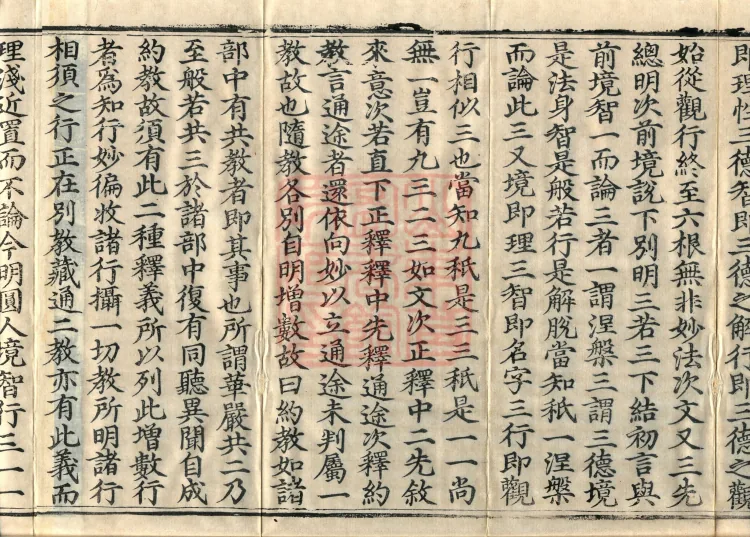 即理性三德者即三德之解行即三德之觀
始從觀行終至六根無非妙法次文又三先
總明次前境說下別明三若三下結初言與
前境智一而論三者一謂涅槃三謂三德境
是法身智是般若行是解脫當知秖一涅槃
而論此三又境即理三智即名字三行即觀
行相似三也當知九秖是三三秖是一一尚
無一豈有九三二三如文次正釋中二先敘
來意次若直下正釋釋中先釋通途次釋約
教言通途者還依向妙以立通途未判屬一
教故也隨教各別自明增數故曰約教如諸
部中有共教者即其事也所謂華嚴共二乃
至般若共三於諸部中復有同聽異聞自成
約教故須有此二種釋義所以列此增數行
者為知行妙徧收諸行攝一切教所明諸行
相須之行正在別教藏通二教亦有此義而
理淺近置而不論今明圓人境智行三一一